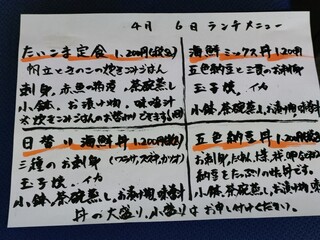 4月 6日 ランチメニュー
たいこま定食 1,200円(税込)
帆立ときのこの炊きこみごはん
刺身、赤魚の煮、茶碗蒸し
小鉢、お漬け物、味噌汁
炊きこみごはんのお替わりできます
海鮮ミックス丼 1,200円
五色納豆と三種のお刺身
玉子焼、イカ
小鉢、茶碗蒸し、お漬物、味噌汁
日替り海鮮丼 1,200円(税込)
三種のお刺身
玉子焼、イカ
小鉢、茶碗蒸し、お漬物、味噌汁
五色納豆丼 1,200円(税込)
お刺身、たくあん
納豆をたっぷりの丼です。
小鉢、茶碗蒸し、お漬物、味噌汁
丼の大盛り、小盛りはお申し付けください。